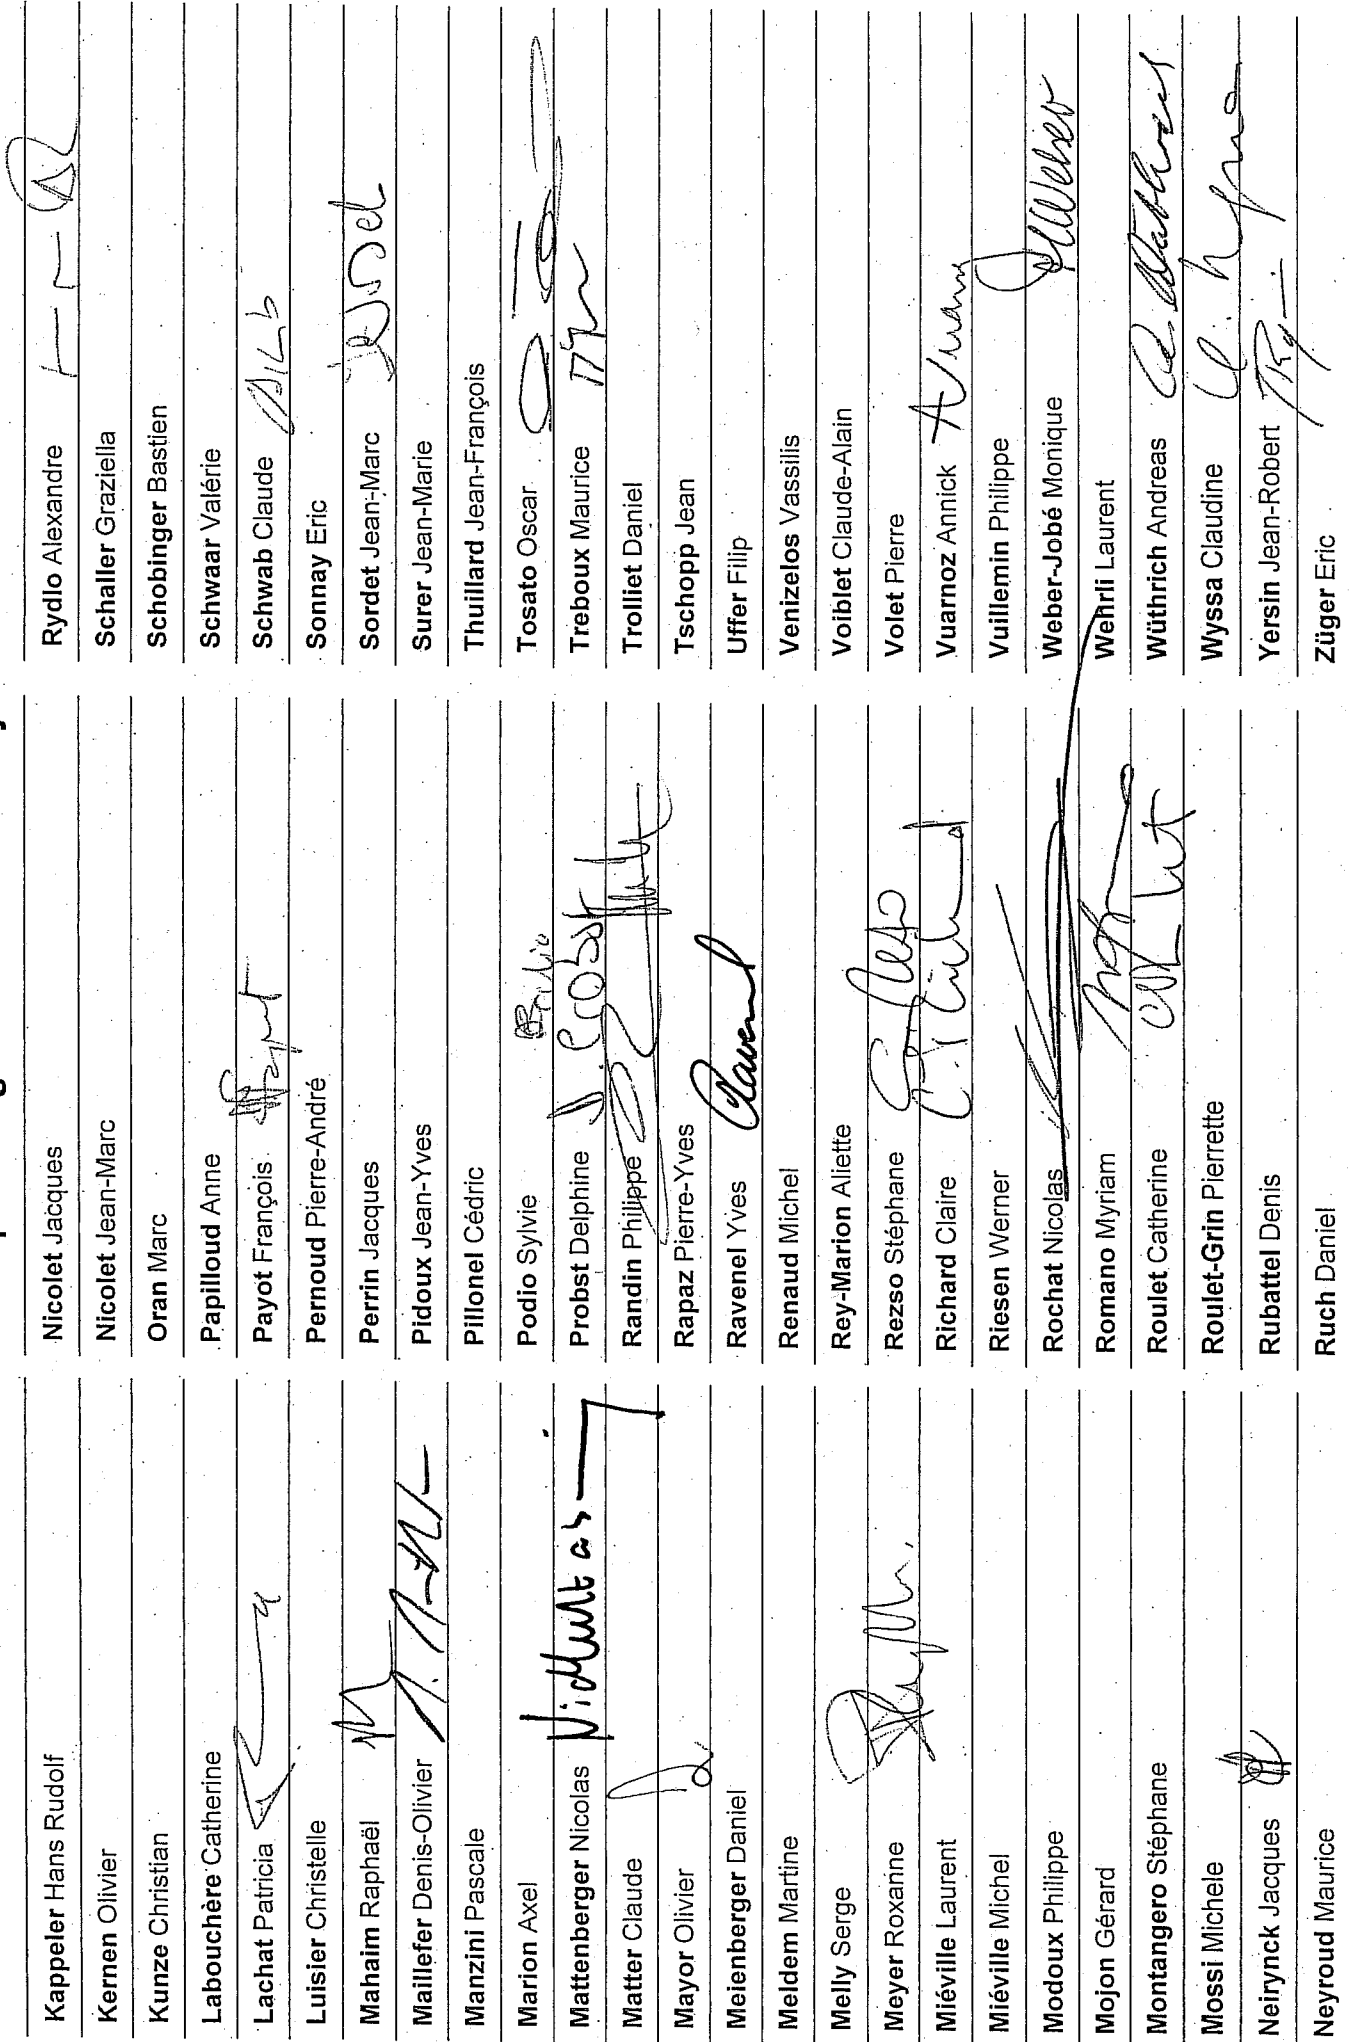 Kappeler Hans Rudolf
Kernen Olivier
Kunze Christian
Labouchère Catherine
Lachat Patricia
Luisier Christelle
Mahaim Raphaël
Maillefer Denis-Olivier
Manzini Pascale
Marion Axel
Mattenberger Nicolas
Matter Claude
Mayor Olivier
Meienberger Daniel
Meldem Martine
Melly Serge
Meyer Roxanne
Miéville Laurent
Miéville Michel
Modoux Philippe
Mojon Gérard
Montangero Stéphane
Mossi Michele
Neirynck Jacques
Neyroud Maurice
Nicolet Jacques
Nicolet Jean-Marc
Oran Marc
Papilloud Anne
Payot François
Pernoud Pierre-André
Perrin Jacques
Pidoux Jean-Yves
Pillonel Cédric
Podio Sylvie
Probst Delphine
Randin Philippe
Rapaz Pierre-Yves
Ravenel Yves
Renaud Michel
Rey-Marion Aliette
Rezso Stéphane
Richard Claire
Riesen Werner
Rochat Nicolas
Romano Myriam
Roulet Catherine
Roulet-Grin Pierrette
Rubattel Denis
Ruch Daniel
Rydlo Alexandre
Schaller Graziella
Schobinger Bastien
Schwaar Valérie
Schwab Claude
Sonnay Eric
Sordet Jean-Marc
Surer Jean-Marie
Thuillard Jean-François
Tosato Oscar
Treboux Maurice
Trolliet Daniel
Tschopp Jean
Uffer Filip
Venizelos Vassilis
Voiblet Claude-Alain
Volet Pierre
Vuarnoz Annick
Vuillemin Philippe
Weber-Jobé Monique
Wehrli Laurent
Wüthrich Andreas
Wyssa Claudine
Yersin Jean-Robert
Züger Eric